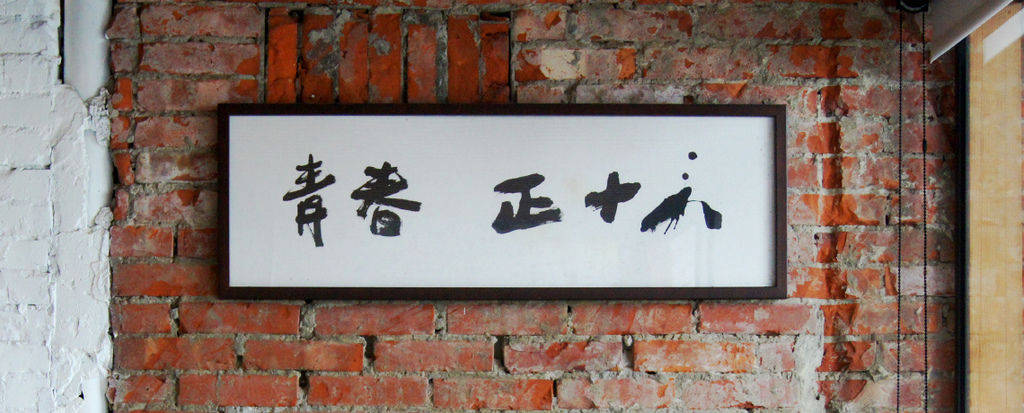 青春 正十